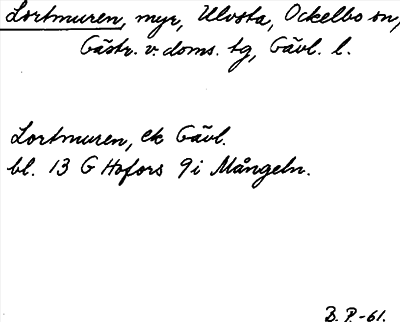 Lortmuren, myr, Ulvsta, Ockelbo sn,
Gästr. v. doms. tg, Gävl. l.
Lortmuren, ek Gävl.
bl. 13 G Hofors 9 i Mångeln.
B. P. -61.